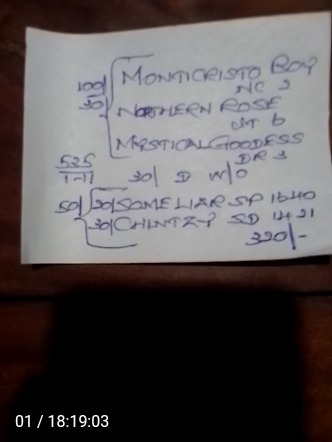 100/ MONTICRISTO BOY
NC 2
30/ NORTHERN ROSE
JT 6
MYSTICALGODDESS
DR 3
525
1-1-1 30/ D W/O
50/ 20/ SOMELIAR SP 1640
30/ CHINTZY SD 1421
320/-
01 / 18:19:03